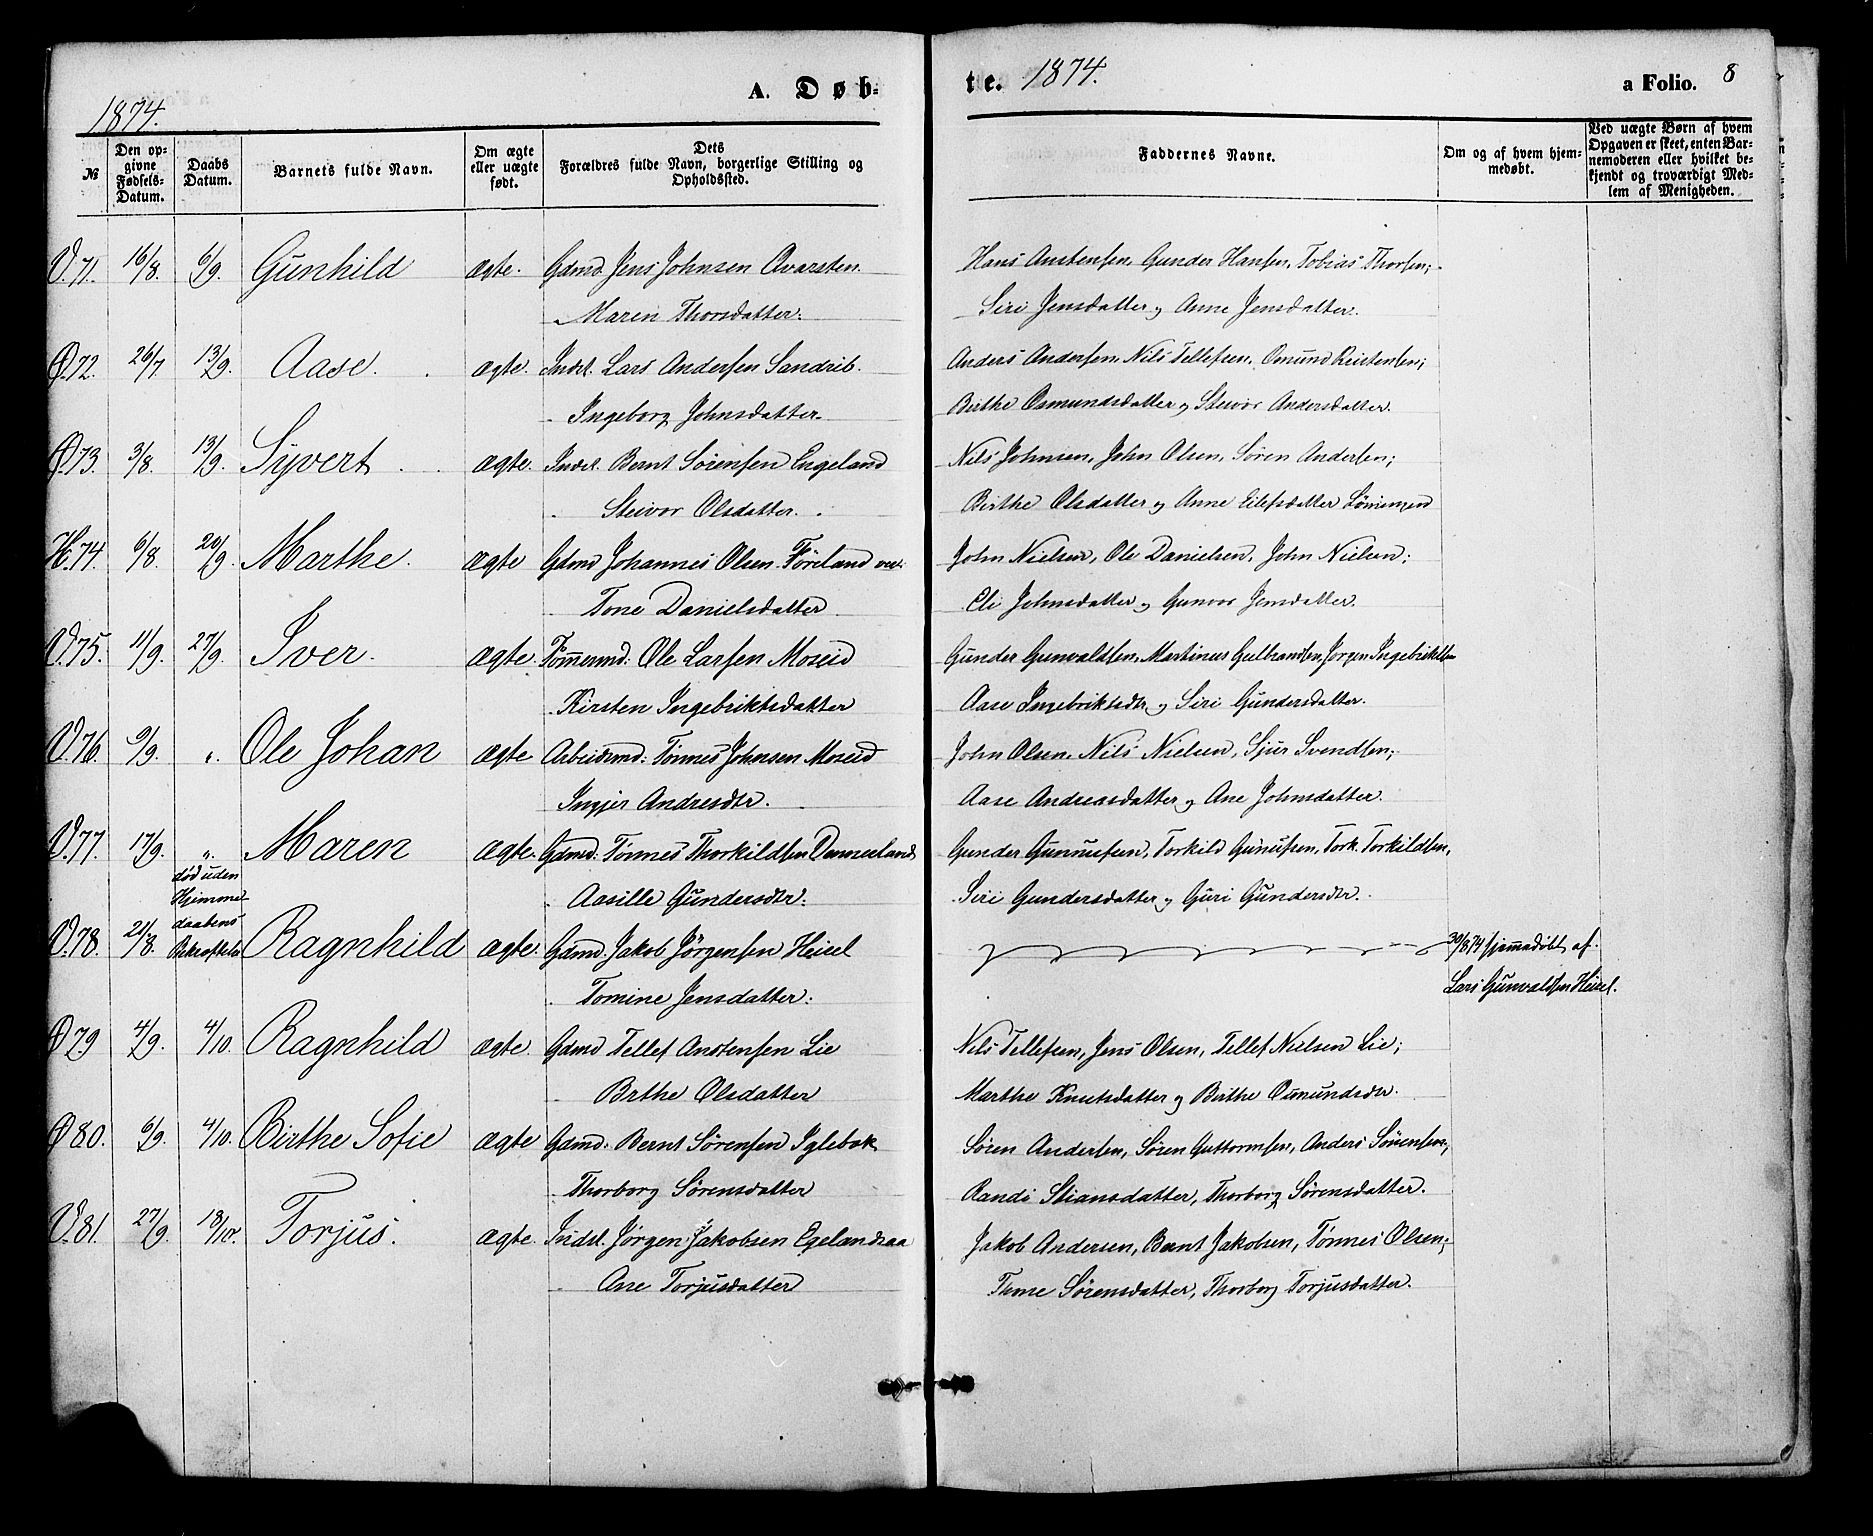 1874.
A. Døb-
te. 1874.
a Folio. 8
№
Den op-
givne
Fødsels-
Datum.
Daabs
Datum.
Barnets fulde Navn.
Om ægte
eller uægte
født.
Dets
Forældres fulde Navn, borgerlige Stilling og
Opholdssted.
Faddernes Navne.
Om og af hvem hjem-
medøbt.
Ved uægte Børn af hvem
Opgaven er skeet, enten Bar-
nemoderen eller hvilket be-
kjendt og troværdigt Med-
lem af Menigheden.
V.71. 16/8. 6/9. Gunhild ægte. Gdmd. Jens Johnsen Avarsten. Hans Anstensen, Gunder Hansen, Tobias Thorsen;
Maren Thorsdatter. Siri Jensdatter og Anne Jensdatter.
Ø.72. 26/7 13/9. Aase. ægte. Indst. Lars Andersen Sandrib. Anders Andersen, Nils Tellefsen, Omund Kristensen;
Ingeborg Johnsdatter. Birthe Osmundsdatter og Steivor Andersdatter.
Ø.73. 3/8. 13/9. Syvert ægte. Indst. Bernt Sørensen Engeland Nils Johnsen, John Olsen, Søren Andersen;
Steivor Olsdatter. Birthe Olsdatter og Anne Eilefsdatter
H.74. 6/8. 20/9. Marthe. ægte Gdmd Johannes Olsen Føreland John Nielsen, Ole Danielsen, John Nielsen;
Tone Danielsdatter Eli Johnsdatter og Gunvor Jensdatter.
V.75. 11/9. 27/9. Iver. ægte. Tømmermd: Ole Larsen Moseid Gunder Gunvaldsen, Martinus Gulbrandsen, Jørgen Ingebriktsen
Kirsten Ingebriktsdatter Aase Ingebriktsdtr og Siri Gundersdatter.
V.76. 9/9. „. Ole Johan ægte Arbeidsmd: Tønnes Johnsen Moseid John Olsen, Nils Nielsen, Sjur Svendsen;
Ingjer Andresdtr. Aase Andreasdatter og Ane Johnsdatter.
V.77. 17/9. „. Maren ægte. Gdmd: Tønnes Thorkildsen Dønnesland Gunder Gunnufsen, Torkild Gunufsen, Tork. Torkildsen,
Aasille Gundersdtr. Siri Gundersdatter og Guri Gundersdtr.
død uden
Hjemme-
daabens
Bekræftelse
V.78. 21/8. Ragnhild ægte. Gdmd. Jakob Jørgensen Heisel 30/8 74 hjemmedøbt af
Tomine Jensdatter. Lars Gunvaldsen Heisel.
Ø 79 4/9. 4/10. Ragnhild ægte. Gdmd Tellef Anstensen Lie Nils Tellefsen, Jens Olsen, Tellef Nielsen Lie;
Birthe Olsdatter Marthe Knutsdatter og Birthe Osmundsdtr.
Ø 80. 6/9. 4/10. Birthe Sofie ægte Gdmd: Bernt Sørensen Iglebæk Søren Andersen, Søren Guttormsen, Anders Sørensen;
Thorborg Sørensdatter Randi Stiansdatter, Thorborg Sørensdatter.
V.81. 27/9. 18/10. Torjus. ægte. Indst. Jørgen Jakobsen Egelandsaa Jakob Andersen, Bernt Jakobsen, Tønnes Olsen;
Ane Torjusdatter Thone Sørensdatter, Thorborg Torjusdatter.